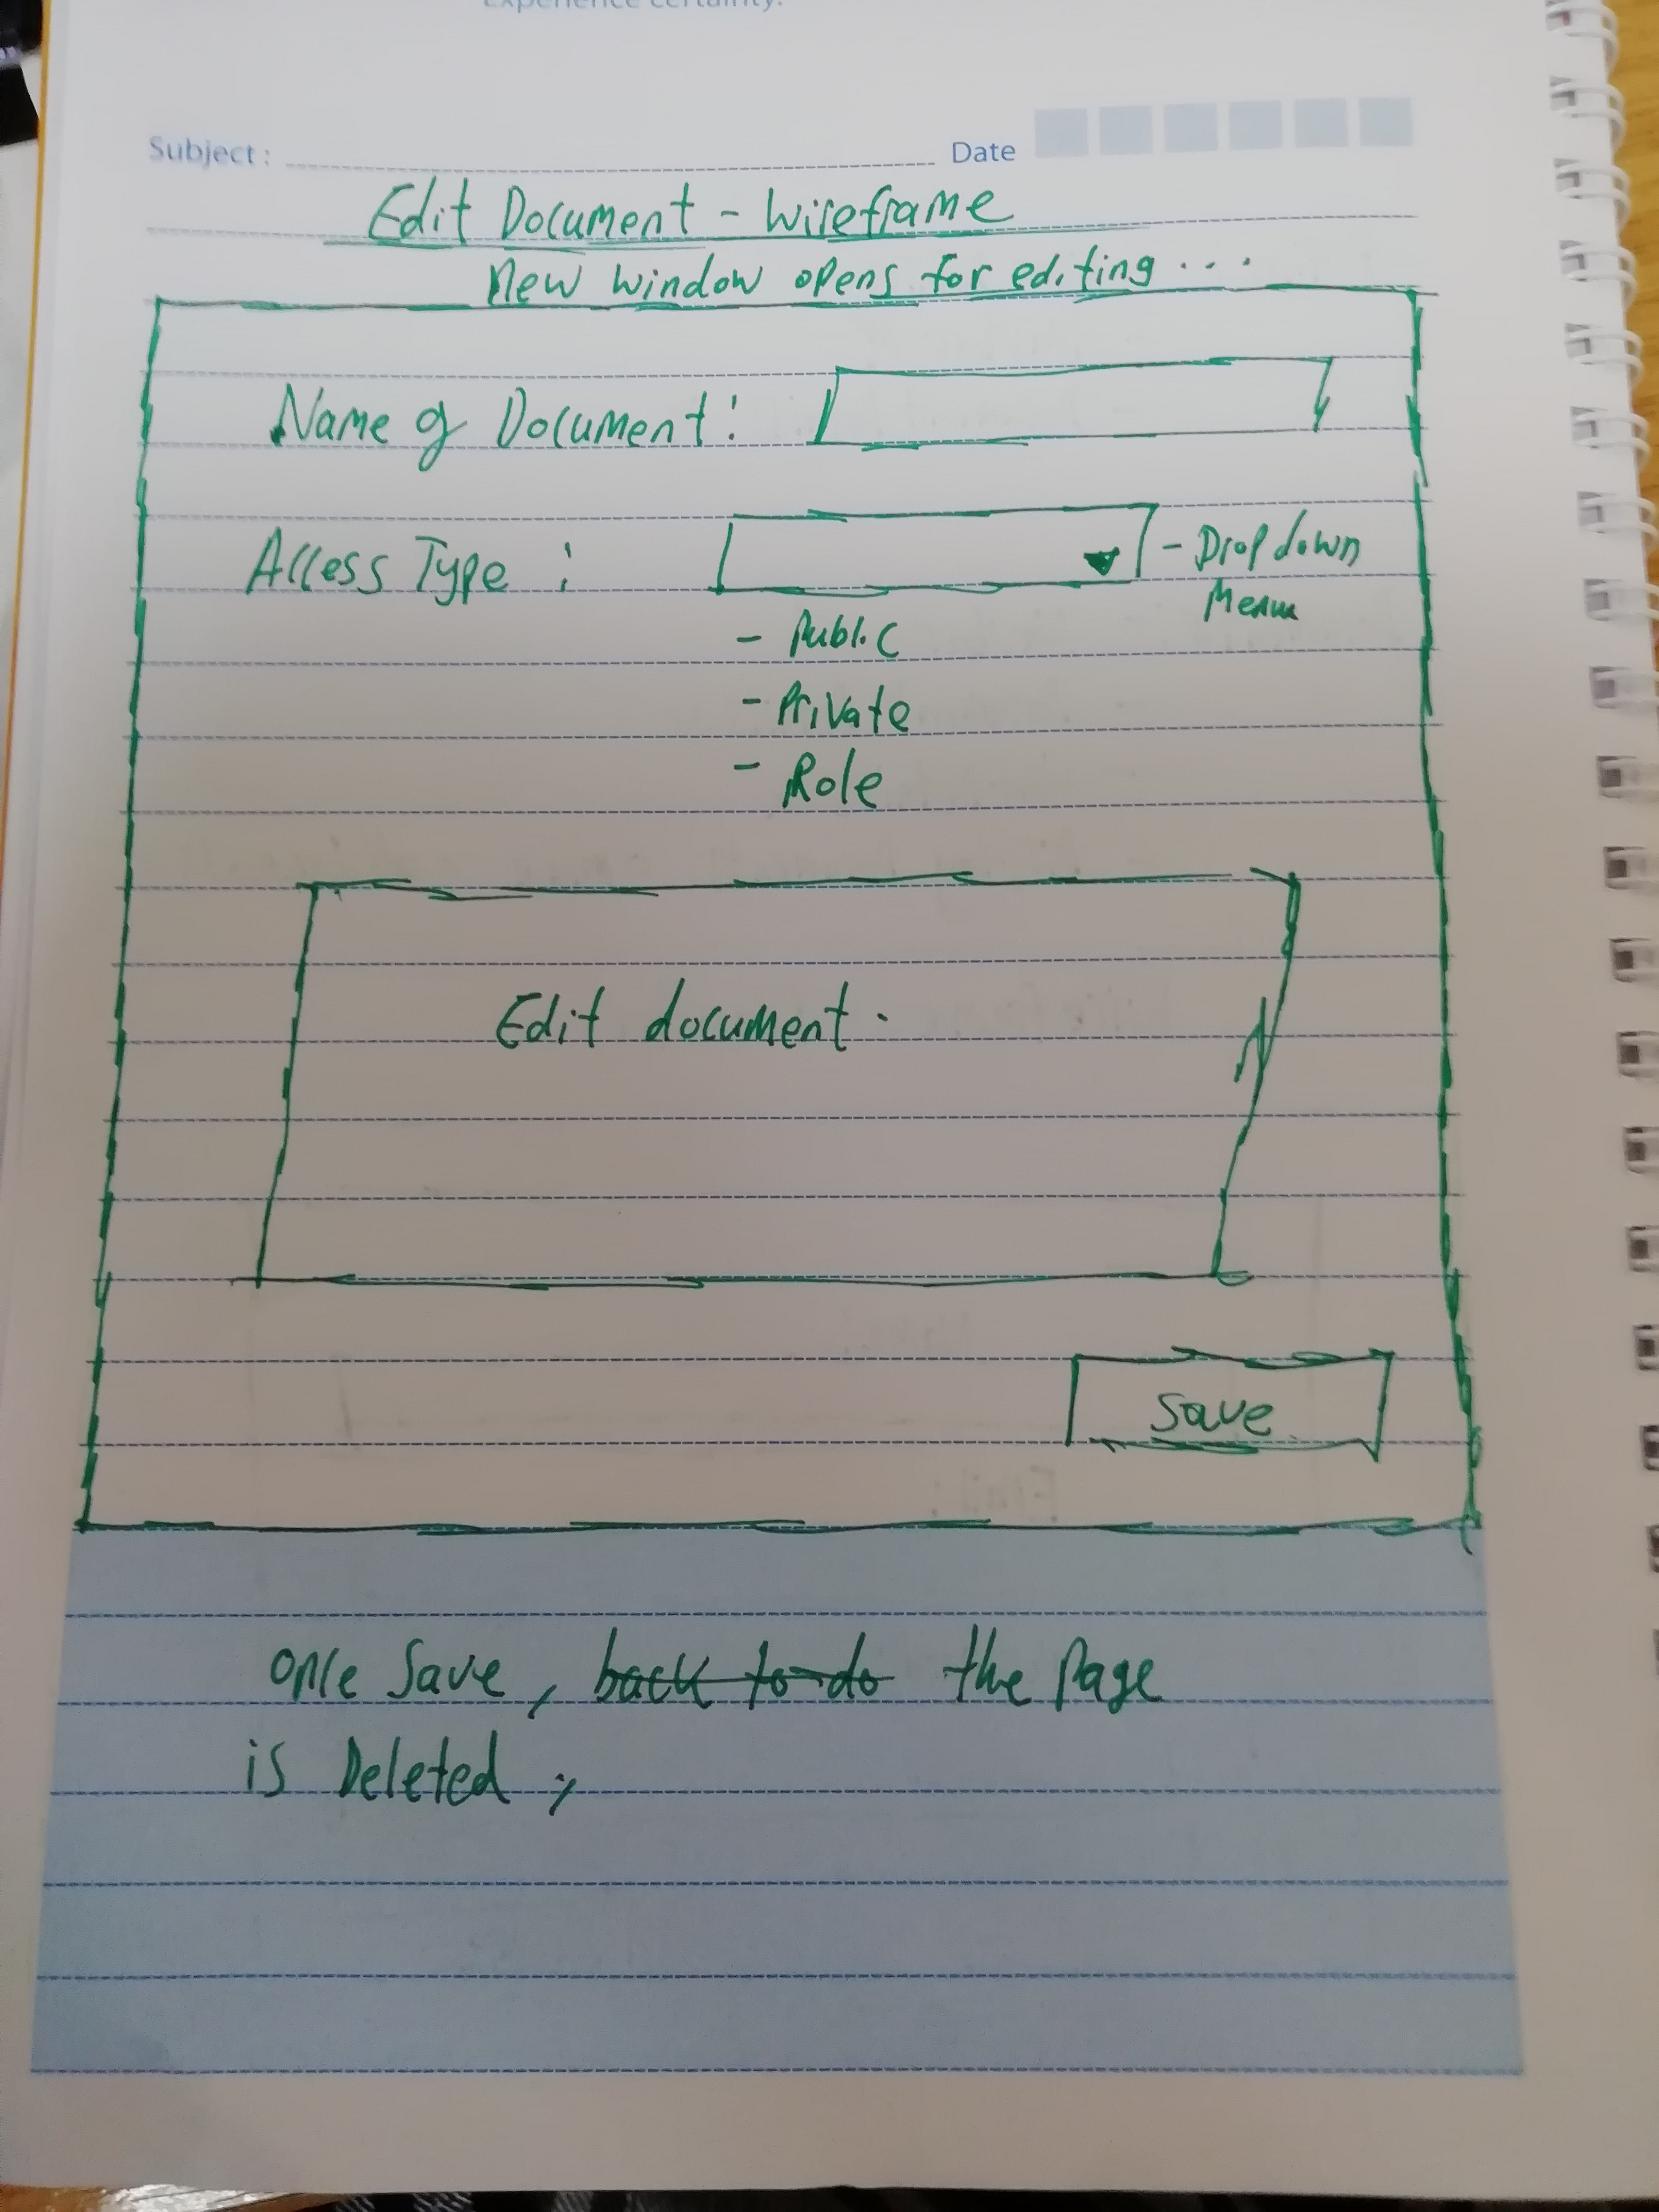 Experience certainty.
Subject : Date
Edit Document - Wireframe
New window opens for editing ...
Name of Document :
Access Type : - Dropdown
Menu
- Public
- Private
- Role
Edit document.
Save
once Save, back to do the Page
is Deleted ;